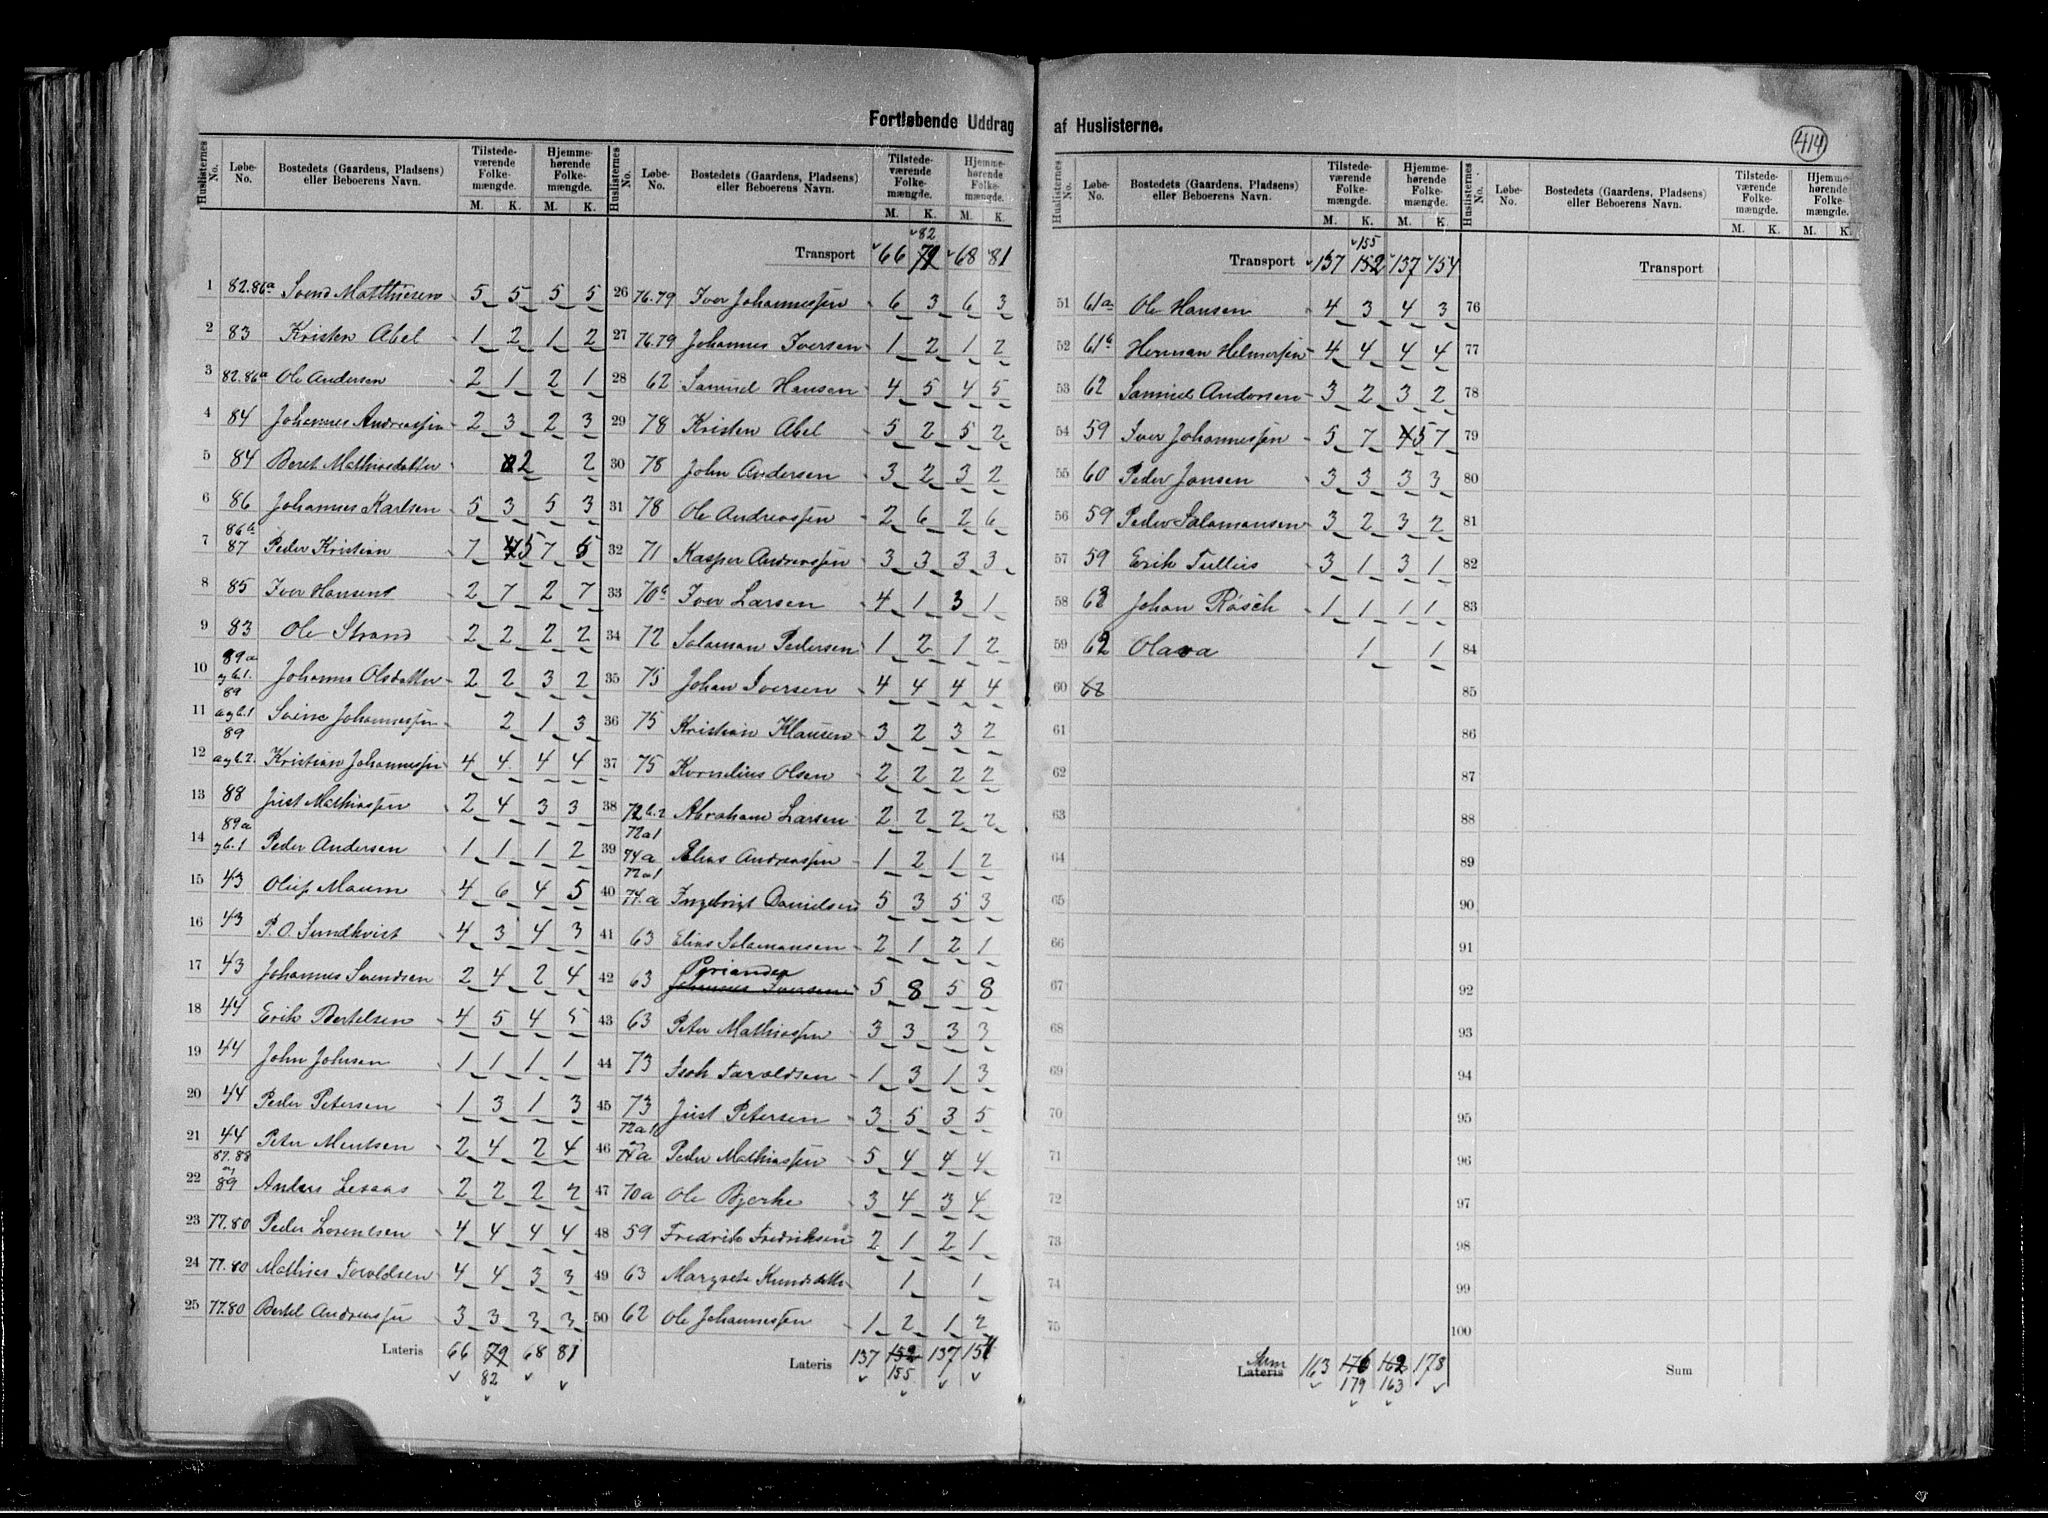 Fortløbende Uddrag af Huslisterne.
414
Huslisternes No. Løbe-No. Bostedets (Gaardens, Pladsens) eller Beboerens Navn. Tilstedeværende Folkemængde. M. K. Hjemmehørende Folkemængde. M. K.
1 82.86a Svend Matthiesen 5 5 5 5
2 83 Kristen Abel 1 2 1 2
3 82.86a Ole Andersen 2 1 2 1
4 84 Johannes Andreassen 2 3 2 3
5 84 Beret Mathiasdatter 2 2
6 86 Johannes Karlsen 5 3 5 3
7 86b 87 Peder Kristian 7 5 7 5
8 85 Iver Hansen 2 7 2 7
9 83 Ole Strand 2 2 2 2
10 89a og b.1 Johanna Olsdatter 2 2 3 2
11 89 a og b.1 Johannessen 2 1 3
12 89 a og b.2. Kristian Johannessen 4 4 4 4
13 88 Just Mathiassen 2 4 3 3
14 89a og b.1 Peder Andersen 1 1 1 2
15 43 Oluf Maum 4 6 4 5
16 43 P. O. Sundkvist 4 3 4 3
17 43 Johannes Svendsen 2 4 2 4
18 44 Erik Bertelsen 4 5 4 5
19 44 John Johnsen 1 1 1 1
20 44 Peder Petersen 1 3 1 3
21 44 Peter Mentsen 2 4 2 4
22 87.88 og 89 Anders 2 2 2 2
23 77.80 Peder Lorentsen 4 4 4 4
24 77.80 Mathias Taraldsen 4 4 3 3
25 77.80 Bertel Andreassen 3 3 3 3
Lateris 66 79 68 81
82
Huslisternes No. Løbe-No. Bostedets (Gaardens, Pladsens) eller Beboerens Navn. Tilstedeværende Folkemængde. M. K. Hjemmehørende Folkemængde. M. K.
82
Transport 66 79 68 81
26 76.79 Iver Johannessen 6 3 6 3
27 76.79 Johannes Iversen 1 2 1 2
28 62 Samuel Hansen 4 5 4 5
29 78 Kristen Abel 5 2 5 2
30 78 John Andersen 3 2 3 2
31 78 Ole Andreassen 2 6 2 6
32 71 Kasper Andreassen 3 3 3 3
33 70b Iver Larsen 4 1 3 1
34 72 Salaman Pedersen 1 2 1 2
35 75 Johan Iversen 4 4 4 4
36 75 Kristian Klausen 3 2 3 2
37 75 Kornelius Olsen 2 2 2 2
38 72b.2 Abraham Larsen 2 2 2 2
39 72a1 74a Elias Andreassen 1 2 1 2
40 72a1 74.a Ingebrigt Danielsen 5 3 5 3
41 63 Elias Salamansen 2 1 2 1
42 63 Periander Johannes Iversen 5 8 5 8
43 63 Peter Mathiassen 3 3 3 3
44 73 Isak Taraldsen 1 3 1 3
45 73 Just Petersen 3 5 3 5
46 72a1 og 74a Peder Mathiassen 5 4 4 4
47 70a Ole Bjerke 3 4 3 4
48 59 Fredrik Fredriksen 2 1 2 1
49 63 Margrete 1 1
50 62 Ole Johannessen 1 2 1 2
Lateris 137 152 137 154
155
Huslisternes No. Løbe-No. Bostedets (Gaardens, Pladsens) eller Beboerens Navn. Tilstedeværende Folkemængde. M. K. Hjemmehørende Folkemængde. M. K.
155
Transport 137 152 137 154
51 61a Ole Hansen 4 3 4 3
52 61b Herman Helmersen 4 4 4 4
53 62 Samuel Andersen 3 2 3 2
54 59 Iver Johannessen 5 7 4 5 7
55 60 Peder Jonsen 3 3 3 3
56 59 Peder Salamansen 3 2 3 2
57 59 Erik Tullius 3 1 3 1
58 62 Johan Rösch 1 1 1 1
59 62 Olava 1 1
60 62
61
62
63
64
65
66
67
68
69
70
71
72
73
74
75
Sum
Lateris 163 176 162 178
179 163
Huslisternes No. Løbe-No. Bostedets (Gaardens, Pladsens) eller Beboerens Navn. Tilstedeværende Folkemængde. M. K. Hjemmehørende Folkemængde. M. K.
Transport
76
77
78
79
80
81
82
83
84
85
86
87
88
89
90
91
92
93
94
95
96
97
98
99
100
Sum